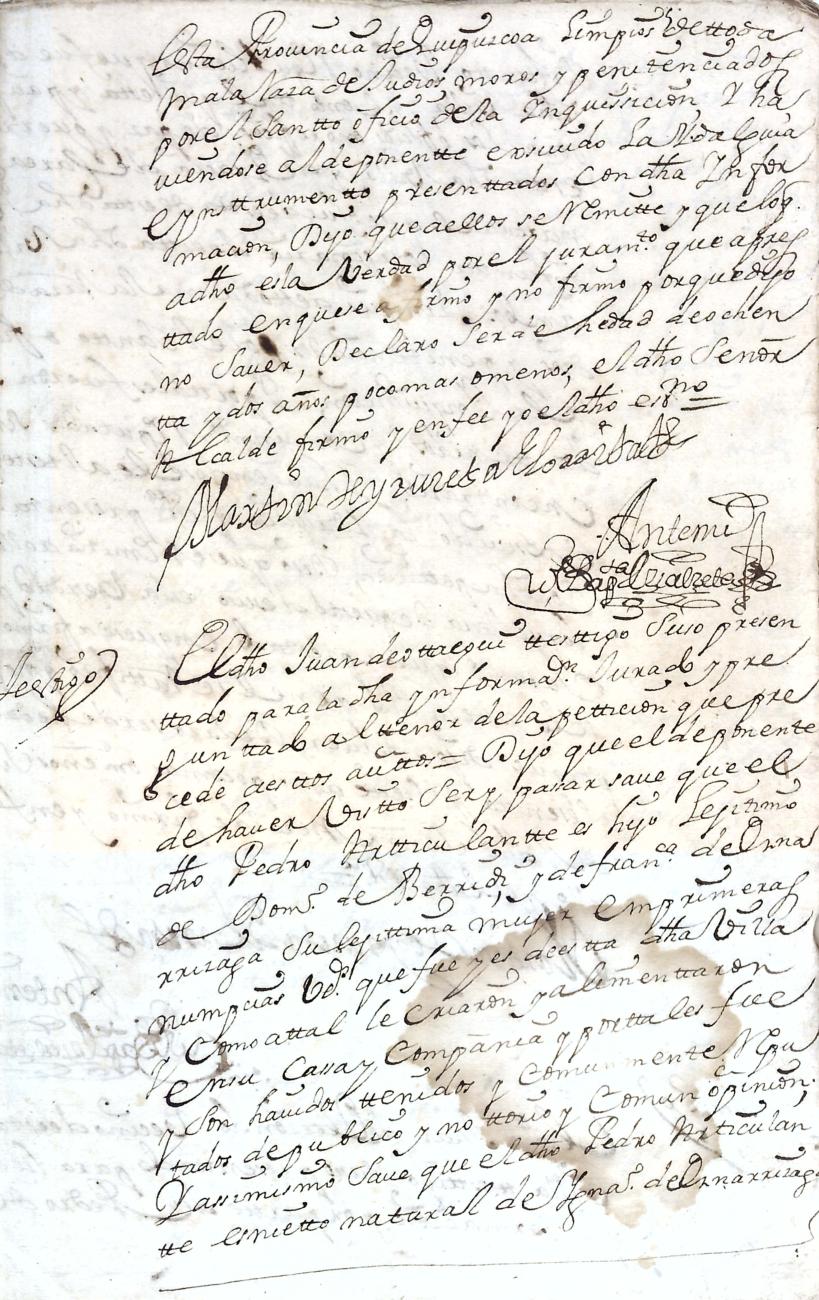 Esta Provincia de Guipuzcoa Limpios de ttoda
mala raza de Judios moros y penitenciados
por el Santto oficio de la Inquissicion Y ha
viendose al deponentte exsivido La
e ynsttrumentto presenttados con dha Infor
macion, Dijo que a ellos se Remitte y que lo q.
a dho es la Verdad por el juramto. que a pres
ttado en que se afirmo y no firmo porque dijo
no Saver, Declaro Ser de hedad de ochen
tta y dos años poco mas o menos, el dho Señor
Alcalde firmo y en fee yo el dho essno =
Martin de yrureta
Antemi
Testigo
El dho Juan de ottaegui ttesttigo Suso presen
ttado para la dha ynformaon. Jurado y pre
gunttado al ttenor de la petticion que pre
cede a esttos auttos = Dijo que el deponente
de haver Vistto Ser y passar save que el
dho Pedro Artticulantte es hijo Legitimo
de Domo. de Berridi, y de franca. de Ornar
rriaga Su legittima mujer en primeras
numpcias Vos. que fue y es de estta dha Villa
y Como a ttal le Criaron y alimenttaron
en su Cassa y Compania y por ttales fue
y Son havidos ttenidos y Comunmente Repu
tados de publico y nottorio y Comun opinion;
Y assimismo Save que el dho Pedro Articulan
tte es nietto natural de Ygnao. de Ornarriaga